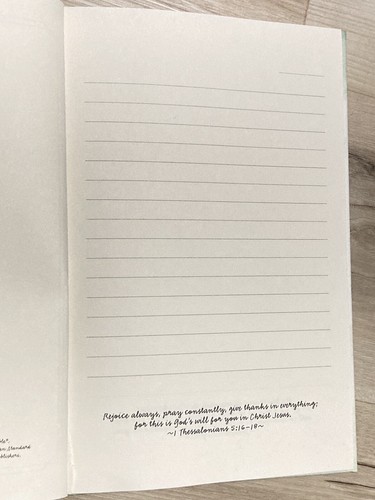 Rejoice always, pray constantly, give thanks in everything;
for this is God's will for you in Christ Jesus.
~1 Thessalonians 5:16-18~
Standard